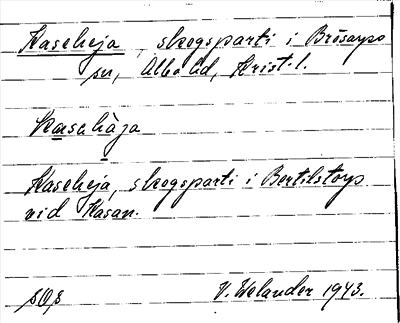 Kaseheja, skogsparti i Brösarps
sn, Albo hd, Krist. l.
Kasahàja
Kaseheja, skogsparti i Bertilstorp
vid Kasan.
V. Welander 1943.